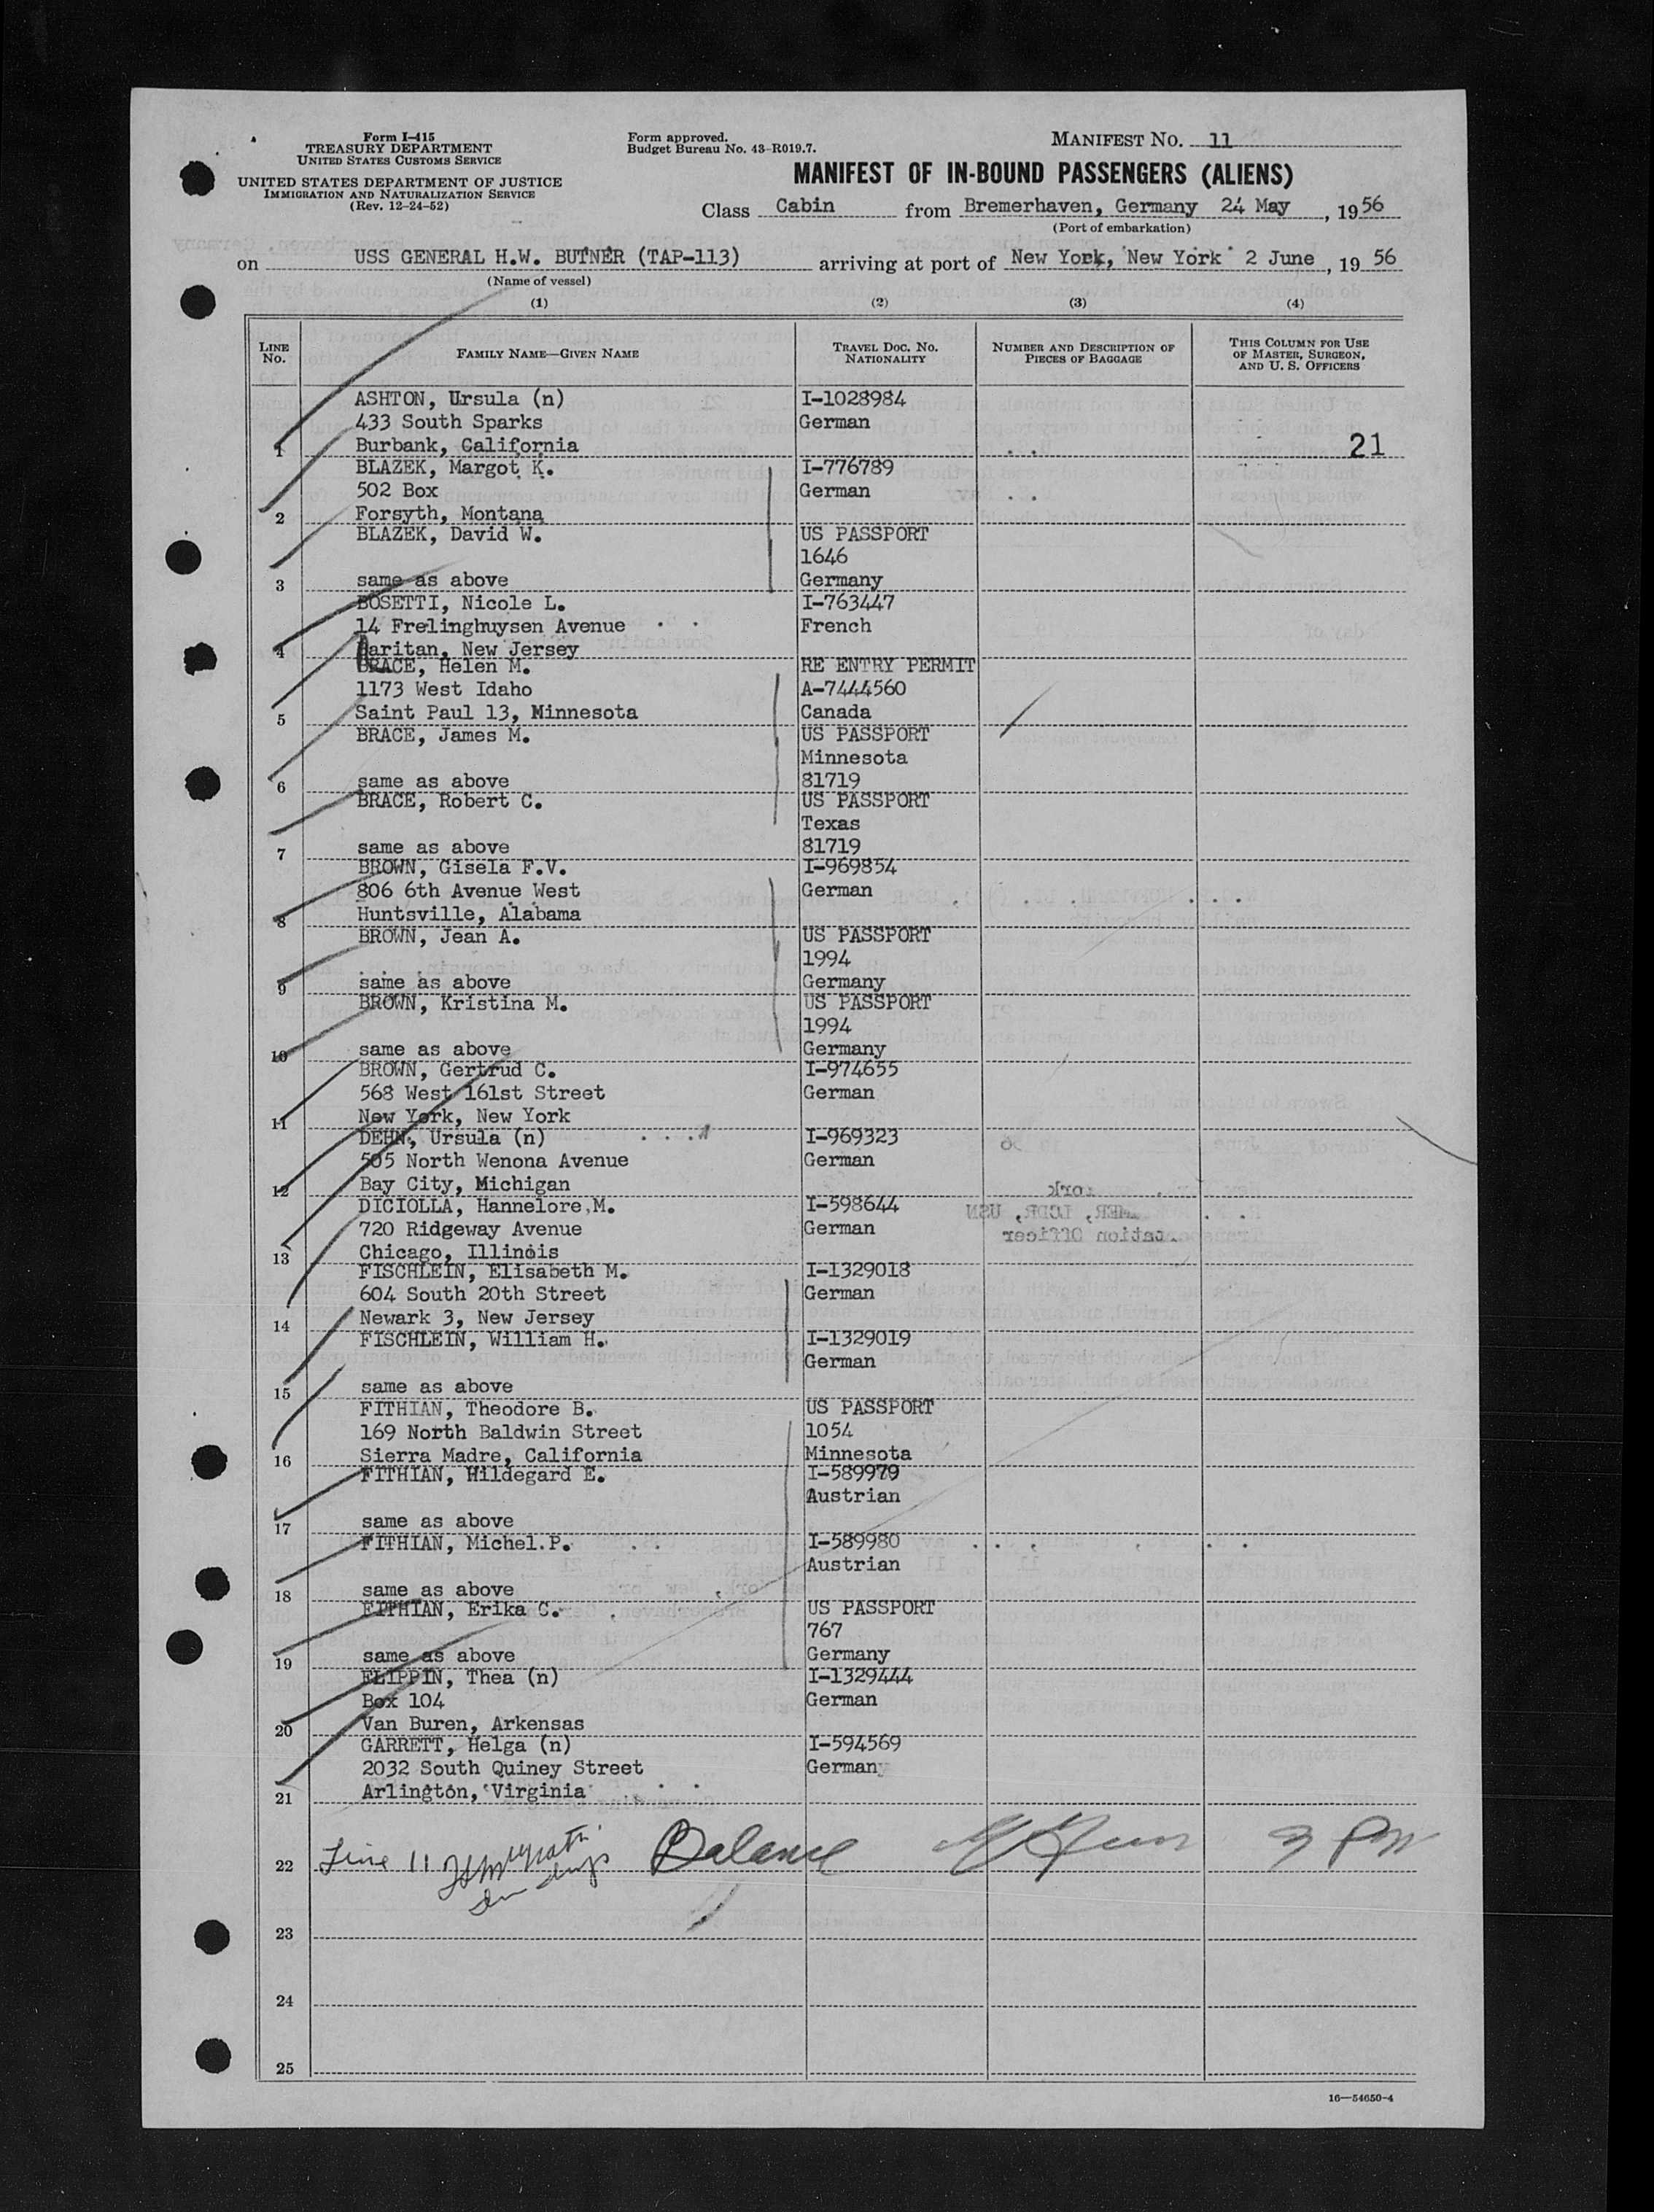 Form I-415
TREASURY DEPARTMENT
UNITED STATES CUSTOMS SERVICE
UNITED STATES DEPARTMENT OF JUSTICE
IMMIGRATION AND NATURALIZATION SERVICE
(Rev. 12-24-52)
Form approved.
Budget Bureau No. 43-R019.7.
MANIFEST NO. 11
MANIFEST OF IN-BOUND PASSENGERS (ALIENS)
Class Cabin from Bremerhaven, Germany 24 May, 1956
(Port of embarkation)
on USS GENERAL H.W. BUTNER (TAP-113) arriving at port of New York, New York 2 June, 1956
(Name of vessel)
(1) (2) (3) (4)
LINE NO.
FAMILY NAME—GIVEN NAME
TRAVEL DOC. NO. NATIONALITY
NUMBER AND DESCRIPTION OF PIECES OF BAGGAGE
THIS COLUMN FOR USE OF MASTER, SURGEON, AND U. S. OFFICERS
ASHTON, Ursula (n) I-1028984
433 South Sparks German
1 Burbank, California 21
BLAZEK, Margot K. I-776789
502 Box German
2 Forsyth, Montana
BLAZEK, David W. US PASSPORT
1646
3 same as above Germany
BOSETTI, Nicole L. I-763447
14 Frelinghuysen Avenue French
4 Raritan, New Jersey
BRACE, Helen M. RE ENTRY PERMIT
1173 West Idaho A-7444560
5 Saint Paul 13, Minnesota Canada
BRACE, James M. US PASSPORT
Minnesota
6 same as above 81719
BRACE, Robert C. US PASSPORT
Texas
7 same as above 81719
BROWN, Gisela F.V. I-969854
806 6th Avenue West German
8 Huntsville, Alabama
BROWN, Jean A. US PASSPORT
1994
9 same as above Germany
BROWN, Kristina M. US PASSPORT
1994
10 same as above Germany
BROWN, Gertrud C. I-974655
568 West 161st Street German
11 New York, New York
DEHN, Ursula (n) I-969323
505 North Wenona Avenue German
12 Bay City, Michigan
DICIOLLA, Hannelore M. I-598644
720 Ridgeway Avenue German
13 Chicago, Illinois
FISCHLEIN, Elisabeth M. I-1329018
604 South 20th Street German
14 Newark 3, New Jersey
FISCHLEIN, William H. I-1329019
German
15 same as above
FITHIAN, Theodore B. US PASSPORT
169 North Baldwin Street 1054
16 Sierra Madre, California Minnesota
FITHIAN, Hildegard E. I-589979
Austrian
17 same as above
FITHIAN, Michel.P. I-589980
Austrian
18 same as above
FITHIAN, Erika C. US PASSPORT
767
19 same as above Germany
FLIPPIN, Thea (n) I-1329444
Box 104 German
20 Van Buren, Arkansas
GARRETT, Helga (n) I-594569
2032 South Quiney Street Germany
21 Arlington, Virginia
22 Line 11 Balance
23
24
25
16—54650-4